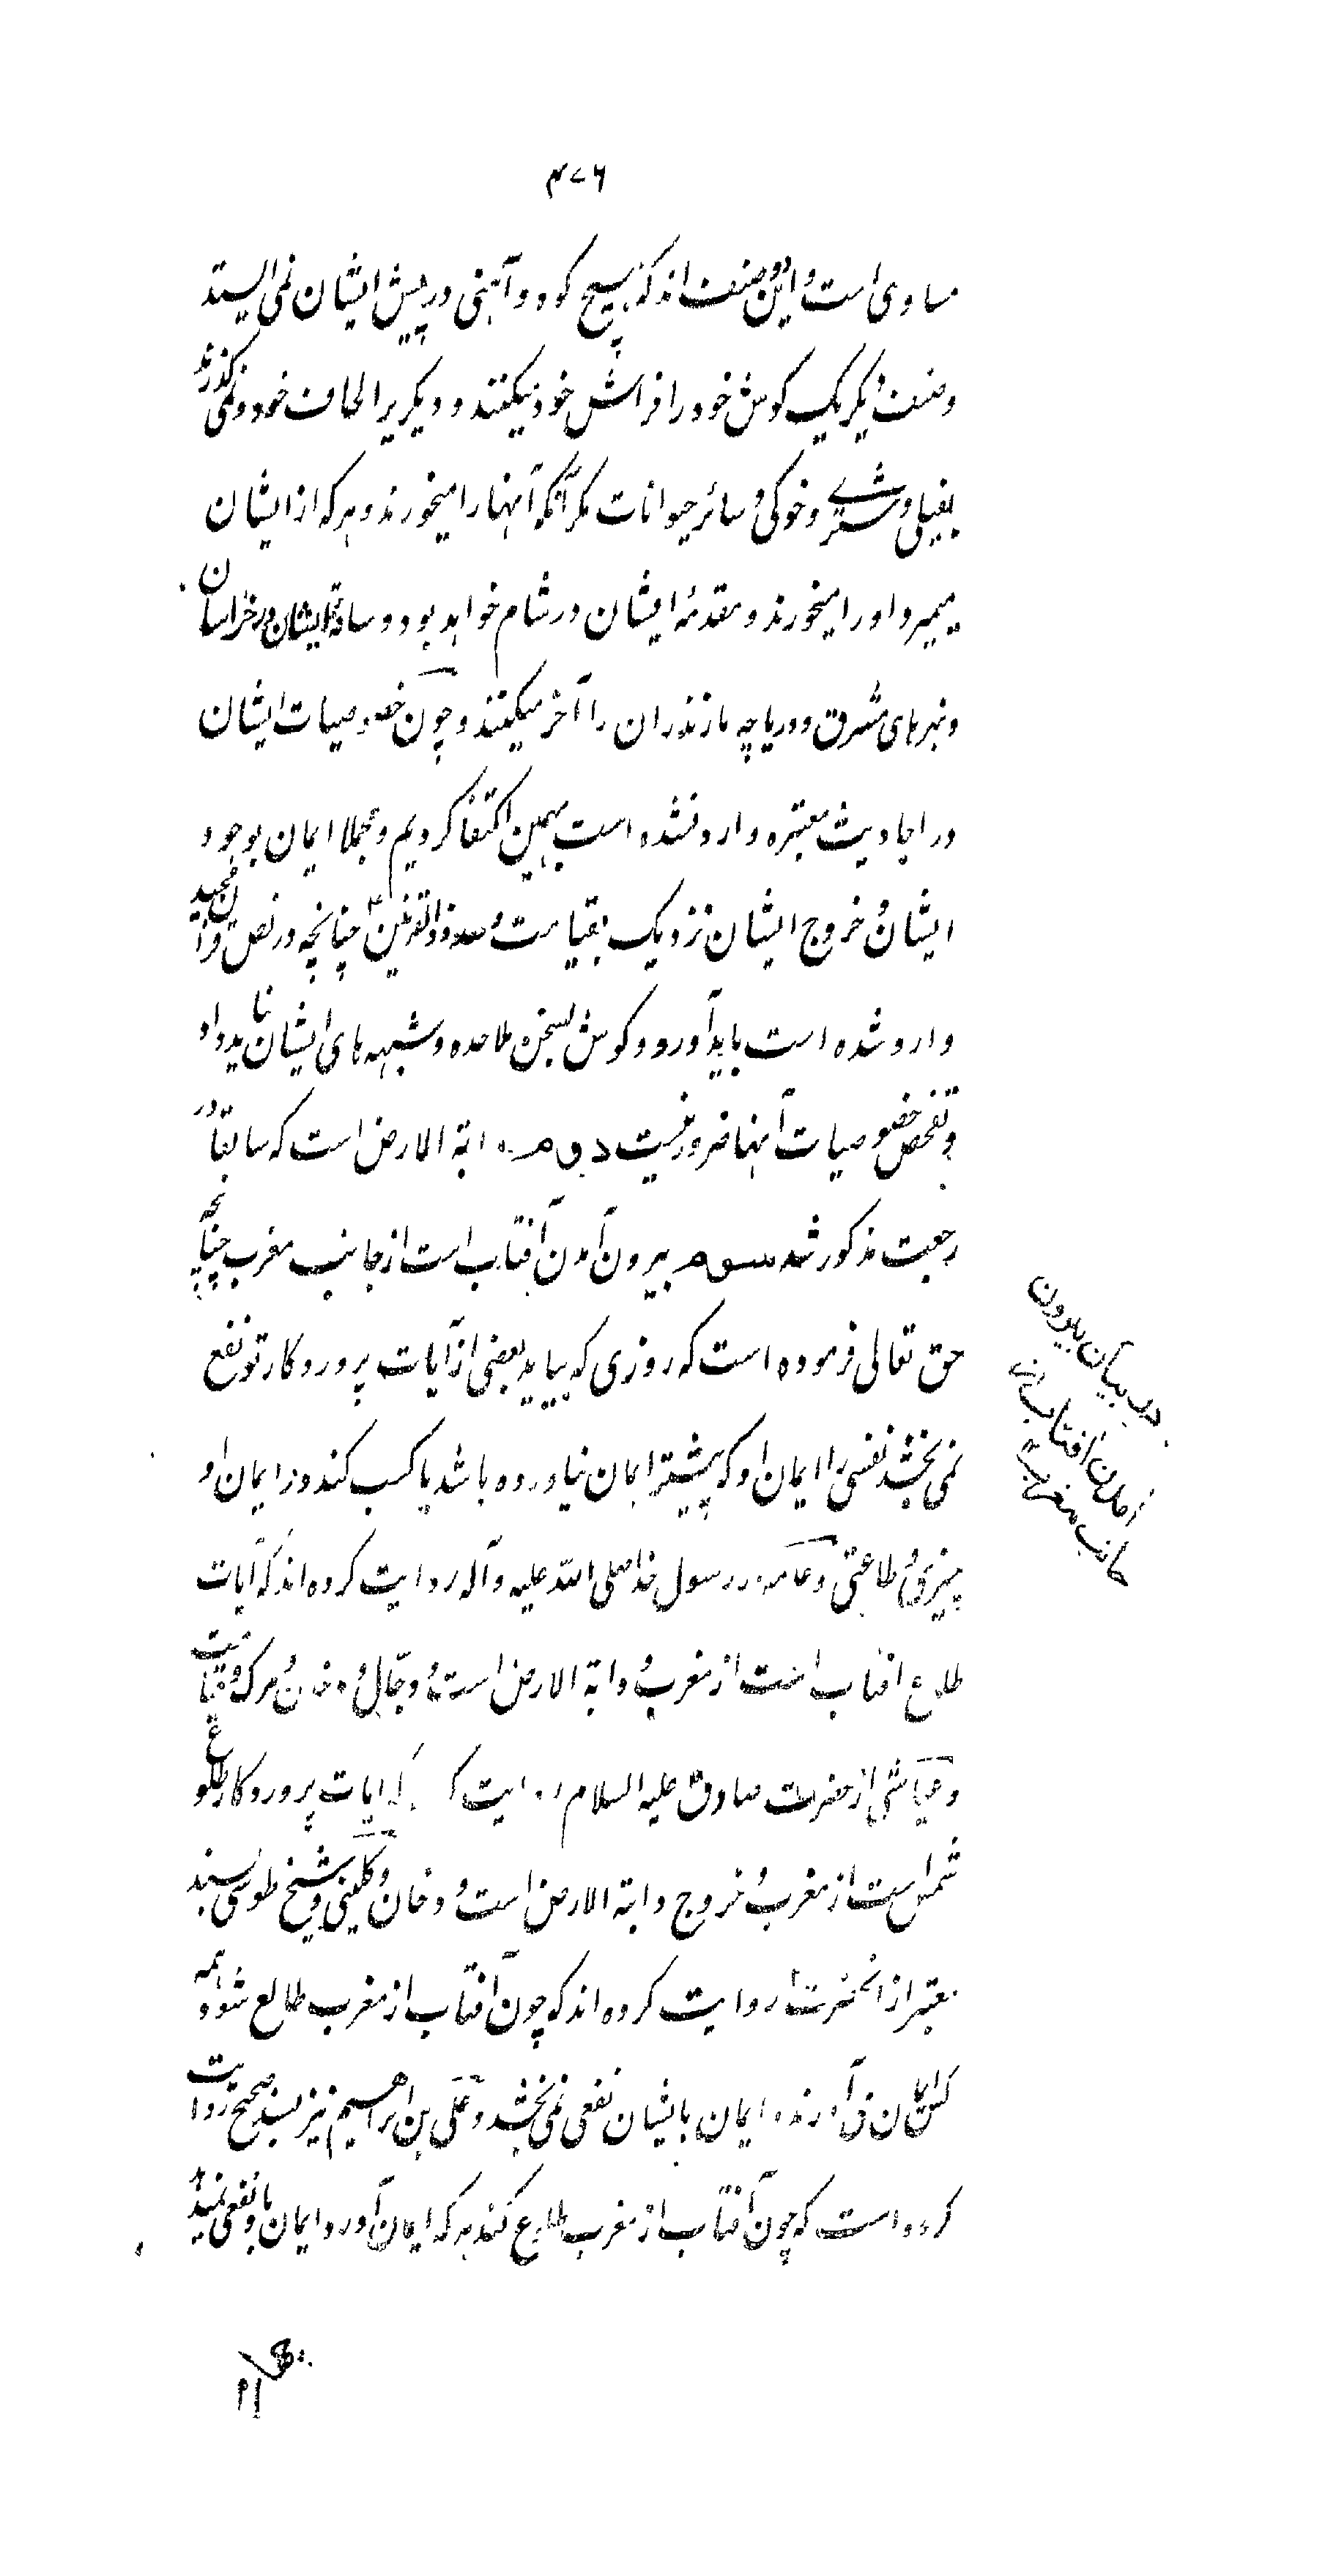 ۴۷۶
مساویست و این دو صنف اند که هیچ کوه و آهنی در پیش ایشان نمی ایستد
و صنف دیگر یک کوش خود را فراش خود میکنند و دیکری را لحاف خود و نمی کذرند
بفیلی و شتری و خوکی و سائر حیوانات مکر آنکه آنها را میخورند و هر که از ایشان
میمیرد او را میخورند و مقدمهٔ ایشان در شام خواهد بود و ساقهٔ ایشان در خراسان
و نهرهای مشرق و دریاچه مازندران را آخر میکنند و چون خصوصیات ایشان
در احادیث معتبره وارد نشده است بهمین اکتفا کردیم و مجملا ایمان بوجود
ایشان و خروج ایشان نزدیک بقیامت و سد ذو القرنین چنانچه در نص قرآن مجید
وارد شده است باید آورد و کوش بسخن ملاحده و شبهه های ایشان نباید داد
و تفحص خصوصیات آنها ضرور نیست دوم دابة الارض است که سابقا در
رجعت مذکور شد سوم بیرون آمدن آفتاب است از جانب مغرب چنانچه
حق تعالی فرموده است که روزی که بیاید بعضی از آیات پروردکار تو نفع
نمی بخشد نفسی را ایمان او که پیشتر ایمان نیاورده باشد یا کسب کند در ایمان او
چیزی و طاعتی و عامه از رسول خدا صلی الله علیه و آله روایت کرده اند که آیات
طلوع افتاب است از مغرب و دابة الارض است و دجال و دخان و مرک و قیامت
و عیاشی از حضرت صادق علیه السلام روایت کرده که آیات پروردکار طلوع
شمس است از مغرب و خروج دابة الارض است و دخان و کلینی و شیخ طوسی بسند
معتبر از آنحضرت روایت کرده اند که چون آفتاب از مغرب طالع شود همه
کس ایمان می آورند و ایمان بایشان نفعی نمی بخشد و علی بن ابراهیم نیز بسند صحیح روایت
کرده است که چون آفتاب از مغرب طلوع کند هر که ایمان آورد ایمان باو نفعی نمیدهد
در بیان بیرون
آمدن افتاب از
جانب مغرب